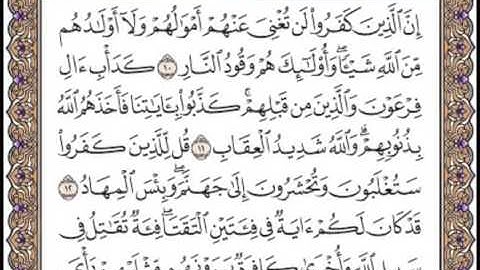 إِنَّ ٱلَّذِينَ كَفَرُوا۟ لَن تُغْنِىَ عَنْهُمْ أَمْوَٰلُهُمْ وَلَآ أَوْلَـٰدُهُم
مِّنَ ٱللَّهِ شَيْـًٔا ۖ وَأُو۟لَـٰٓئِكَ هُمْ وَقُودُ ٱلنَّارِ ١٠ كَدَأْبِ ءَالِ
فِرْعَوْنَ وَٱلَّذِينَ مِن قَبْلِهِمْ ۚ كَذَّبُوا۟ بِـَٔايَـٰتِنَا فَأَخَذَهُمُ ٱللَّهُ
بِذُنُوبِهِمْ ۗ وَٱللَّهُ شَدِيدُ ٱلْعِقَابِ ١١ قُل لِّلَّذِينَ كَفَرُوا۟
سَتُغْلَبُونَ وَتُحْشَرُونَ إِلَىٰ جَهَنَّمَ ۚ وَبِئْسَ ٱلْمِهَادُ ١٢
قَدْ كَانَ لَكُمْ ءَايَةٌ فِى فِئَتَيْنِ ٱلْتَقَتَا ۖ فِئَةٌ تُقَـٰتِلُ فِى
سَبِيلِ ٱللَّهِ وَأُخْرَىٰ كَافِرَةٌ يَرَوْنَهُم مِّثْلَيْهِمْ رَأْىَ